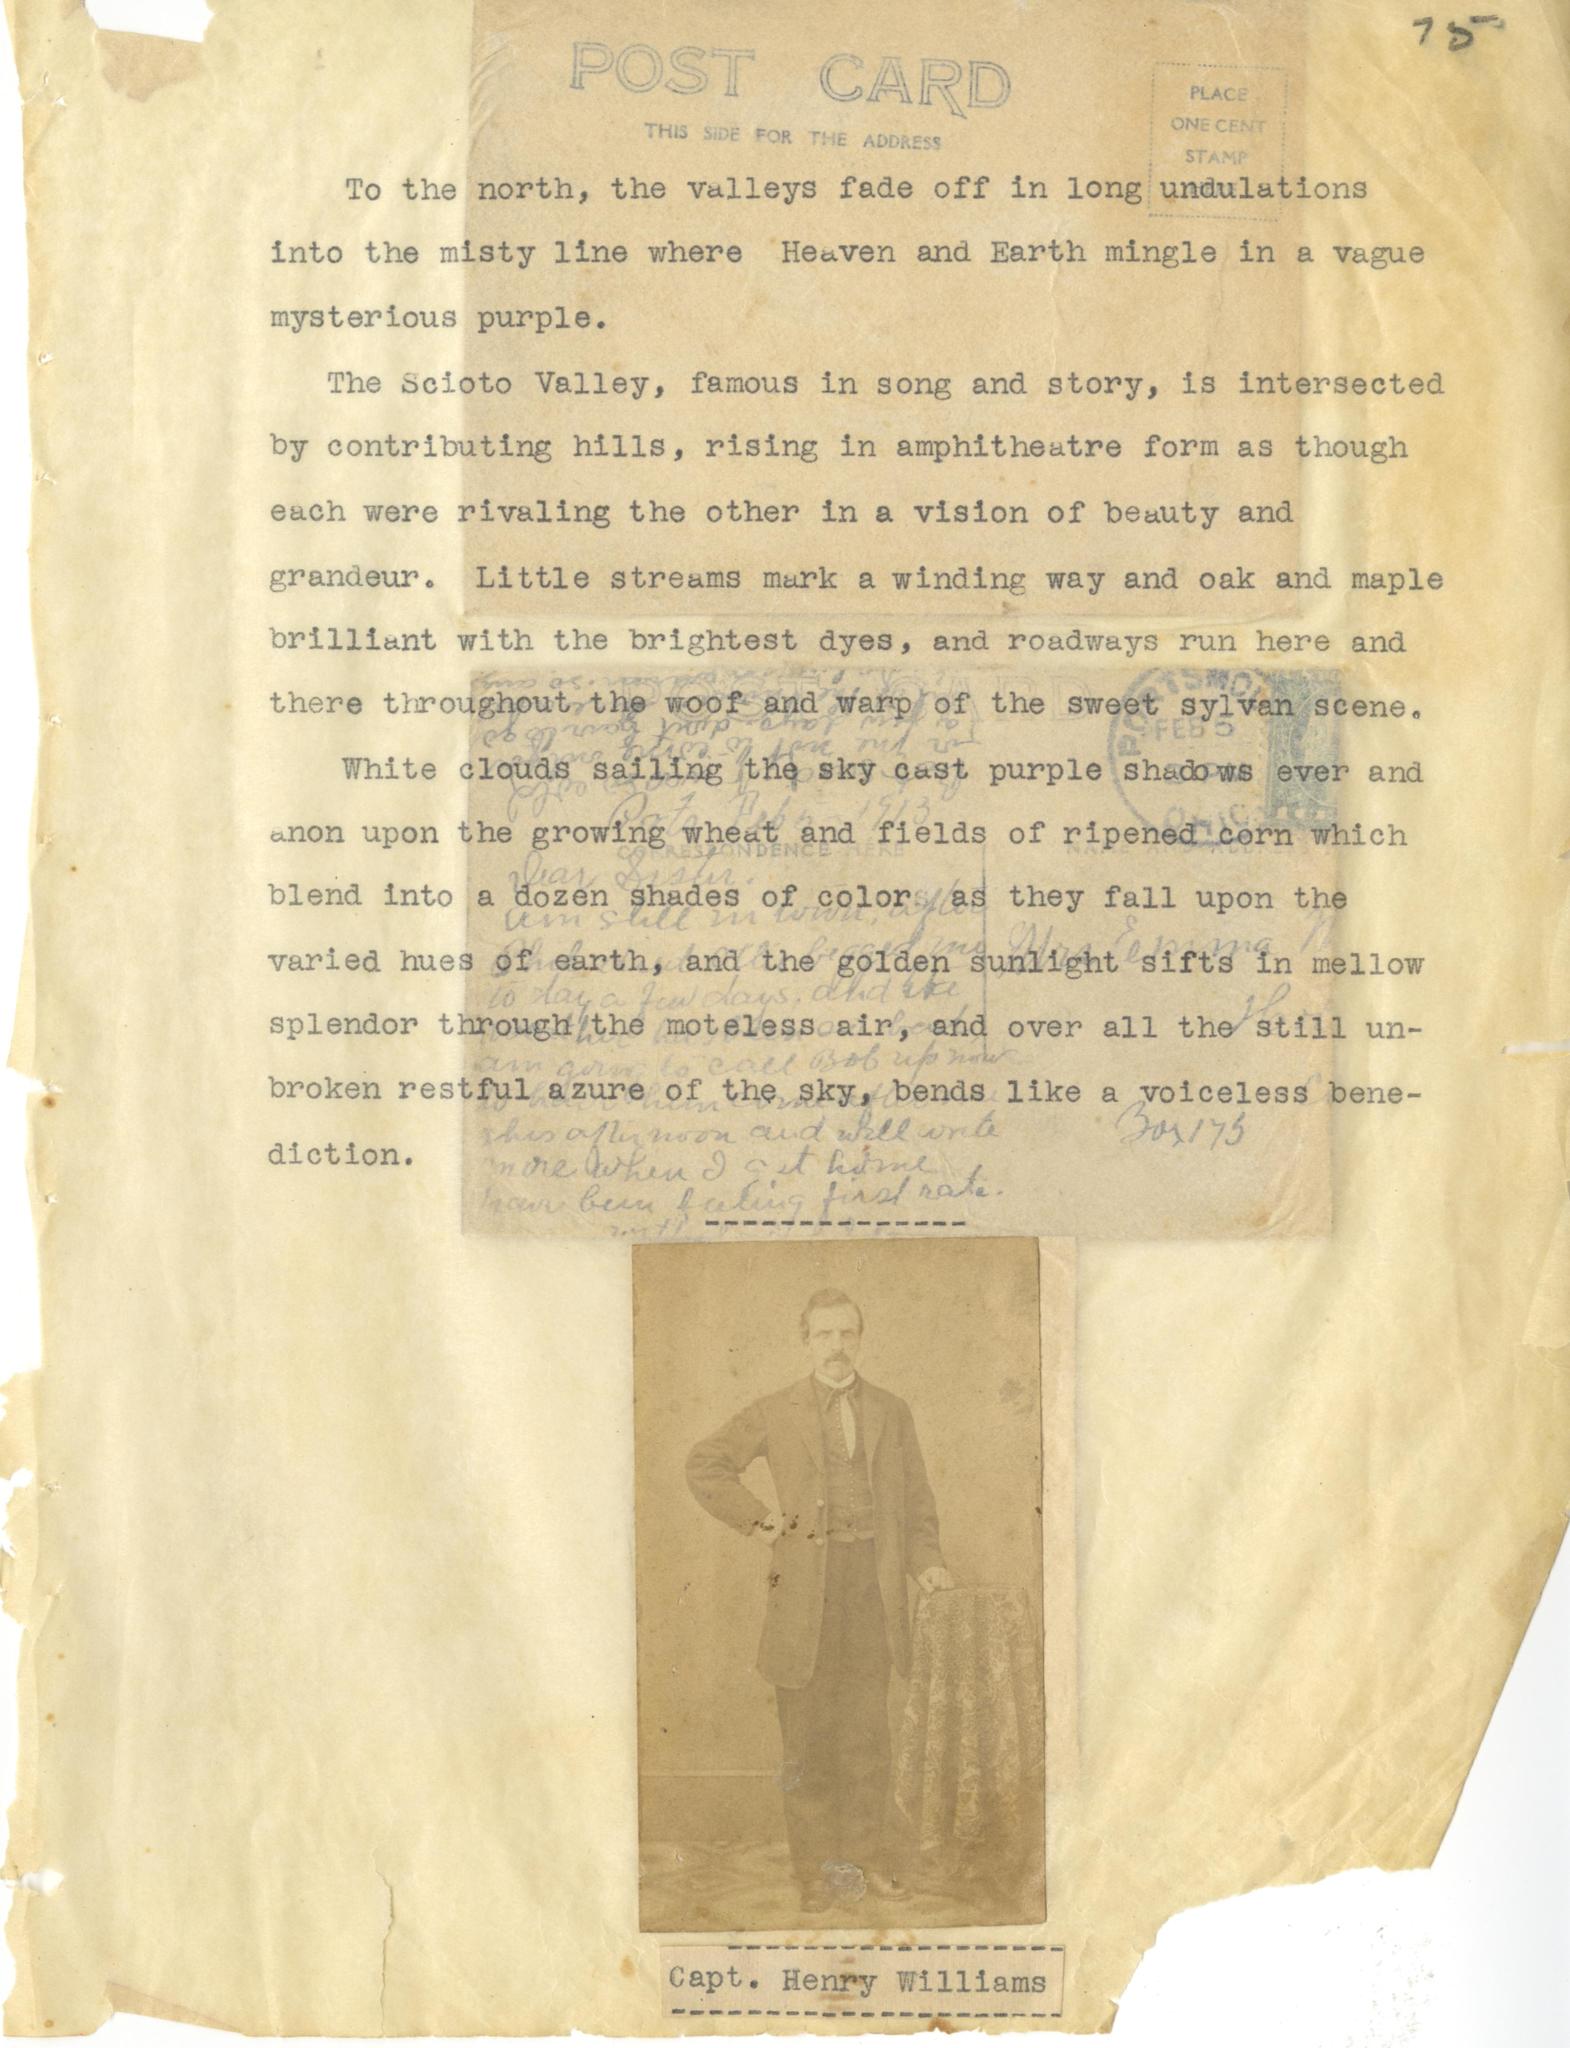 75
POST CARD
THIS SIDE FOR THE ADDRESS
PLACE
ONE CENT
STAMP
To the north, the valleys fade off in long undulations
into the misty line where Heaven and Earth mingle in a vague
mysterious purple.
The Scioto Valley, famous in song and story, is intersected
by contributing hills, rising in amphitheatre form as though
each were rivaling the other in a vision of beauty and
grandeur. Little streams mark a winding way and oak and maple
brilliant with the brightest dyes, and roadways run here and
there throughout the woof and warp of the sweet sylvan scene.
White clouds sailing the sky cast purple shadows ever and
anon upon the growing wheat and fields of ripened corn which
blend into a dozen shades of color as they fall upon the
varied hues of earth, and the golden sunlight sifts in mellow
splendor through the moteless air, and over all the still un-
broken restful azure of the sky, bends like a voiceless bene-
diction.
FEB 5
1913
CORRESPONDENCE HERE
Dear Sister.
am still in town,
to day a few days, and
am going to call Bob up now
this afternoon and will write
more when I get home
have been feeling first rate.
Mrs Emma
Box 175
Capt. Henry Williams